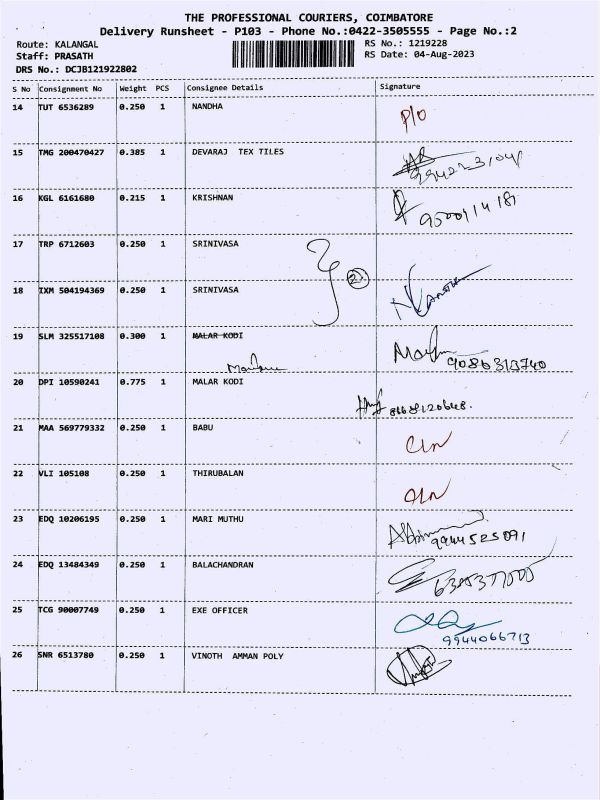 THE PROFESSIONAL COURIERS, COIMBATORE
Delivery Runsheet - P103 - Phone No.:0422-3505555 - Page No.:2
Route: KALANGAL RS No.: 1219228
Staff: PRASATH RS Date: 04-Aug-2023
DRS No.: DCJB121922802
S No Consignment No Weight PCS Consignee Details Signature
14 TUT 6536289 0.250 1 NANDHA P/O
15 TMG 200470427 0.385 1 DEVARAJ TEX TILES
16 KGL 6161680 0.215 1 KRISHNAN
17 TRP 6712603 0.250 1 SRINIVASA
2
18 IXM 504194369 0.250 1 SRINIVASA
19 SLM 325517108 0.300 1 MALAR KODI
9086313740
20 DPI 10590241 0.775 1 MALAR KODI
8668120648.
21 MAA 569779332 0.250 1 BABU
22 VLI 105108 0.250 1 THIRUBALAN
23 EDQ 10206195 0.250 1 MARI MUTHU
9944525091
24 EDQ 13484349 0.250 1 BALACHANDRAN
25 TCG 90007749 0.250 1 EXE OFFICER
9944066713
26 SNR 6513780 0.250 1 VINOTH AMMAN POLY